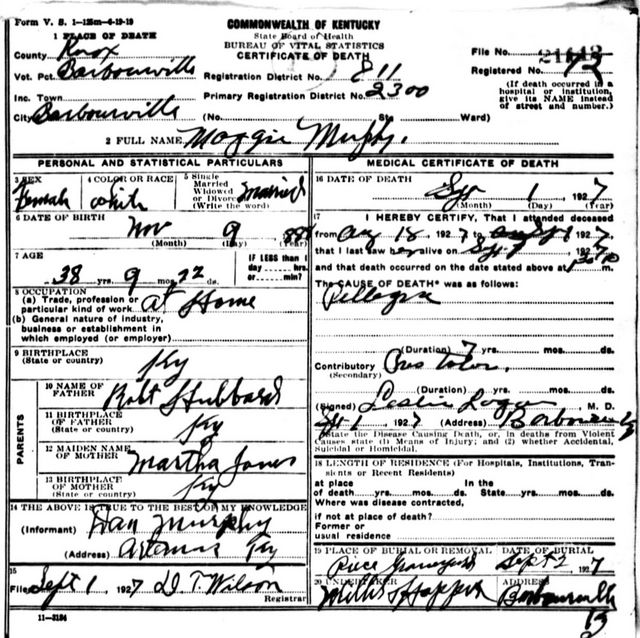 Form V. S. 1-125m-4-19-19
COMMONWEALTH OF KENTUCKY
State Board of Health
BUREAU OF VITAL STATISTICS
CERTIFICATE OF DEATH
1 PLACE OF DEATH
County Knox
Vot. Pct. Barbourville
Inc. Town
City Barbourville
File No.
Registered No.
(If death occurred in a
hospital or institution,
give its NAME instead
of street and number.)
Registration District No.
Primary Registration District No. 2300
(No. St. Ward)
2 FULL NAME Maggie Murphy.
PERSONAL AND STATISTICAL PARTICULARS
3 SEX Female
4 COLOR OR RACE White
5 Single
Married
Widowed
or Divorced
(Write the word) Married
6 DATE OF BIRTH Nov 9
(Month) (Day) (Year)
7 AGE 38 yrs. 9 mos. 22 ds.
IF LESS than 1
day hrs.
or min?
8 OCCUPATION
(a) Trade, profession or
particular kind of work At Home
(b) General nature of industry,
business or establishment in
which employed (or employer)
9 BIRTHPLACE
(State or country) Ky
PARENTS
10 NAME OF
FATHER Robt Hubbard
11 BIRTHPLACE
OF FATHER
(State or country) Ky
12 MAIDEN NAME
OF MOTHER Martha Jones
13 BIRTHPLACE
OF MOTHER
(State or country) Ky
14 THE ABOVE IS TRUE TO THE BEST OF MY KNOWLEDGE
(Informant) Dan Murphy
(Address) Artemus Ky
15
Filed Sept 1 1927 D T Wilson
Registrar
11-3184
MEDICAL CERTIFICATE OF DEATH
16 DATE OF DEATH 1 1927
(Month) (Day) (Year)
17 I HEREBY CERTIFY, That I attended deceased
from Aug 18 1927 to 1927
that I last saw her alive on 192
and that death occurred on the date stated above at m.
The CAUSE OF DEATH* was as follows:
Pellagra
(Duration) 7 yrs. mos. ds.
Contributory
(Secondary)
(Duration) yrs. mos. ds.
(Signed) Leslie Logan, M. D.
1 1927 (Address)
*State the Disease Causing Death, or, in deaths from Violent
Causes state (1) Means of Injury; and (2) whether Accidental,
Suicidal or Homicidal.
18 LENGTH OF RESIDENCE (For Hospitals, Institutions, Tran-
sients or Recent Residents)
at place In the
of death yrs. mos. ds. State yrs. mos. ds.
Where was disease contracted,
if not at place of death?
Former or
usual residence
19 PLACE OF BURIAL OR REMOVAL DATE OF BURIAL
Graveyard Sept 2 1927
20 UNDERTAKER ADDRESS
Barbourville